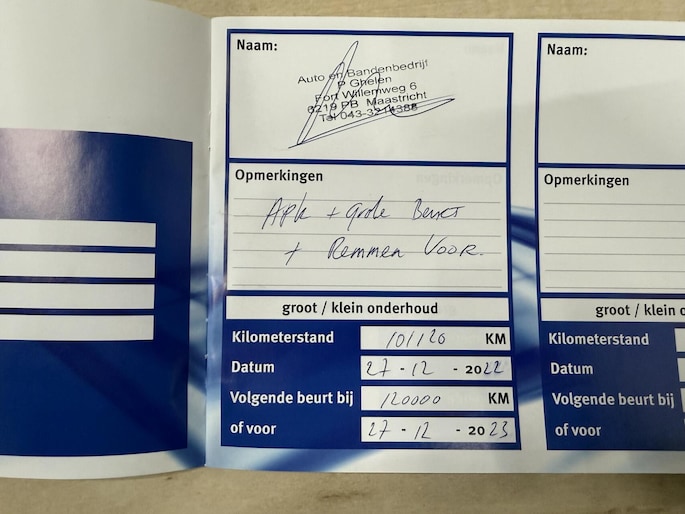 Naam:
Auto en Bandenbedrijf
P Ghelen
Fort Willemweg 6
6219 PB Maastricht
Tel 043-3214388
Opmerkingen
Apk + grote Beurt
+ Remmen Voor.
groot / klein onderhoud
Kilometerstand 101120 KM
Datum 27 - 12 - 2022
Volgende beurt bij 120000 KM
of voor 27 - 12 - 2023
Naam:
Opmerkingen
groot / klein o
Kilometerstand
Datum
Volgende beurt bij
of voor